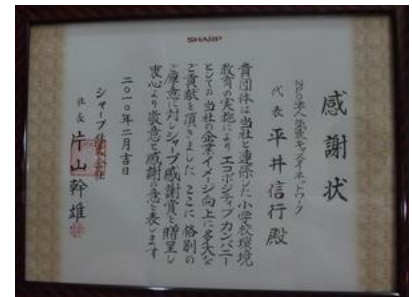 SHARP
感謝状
NPO法人気象キャスターネットワーク
代表 平井信行殿
貴団体は当社と連携した小学校環境
教育の実施によりエコポジティブカンパニー
としての当社の企業イメージ向上に多大な
ご貢献を頂きました ここに格別の
ご厚意に対しシャープ感謝賞を贈呈し
衷心より敬意と感謝の意を表します
二〇一〇年二月吉日
シャープ株式会社
社長 片山幹雄